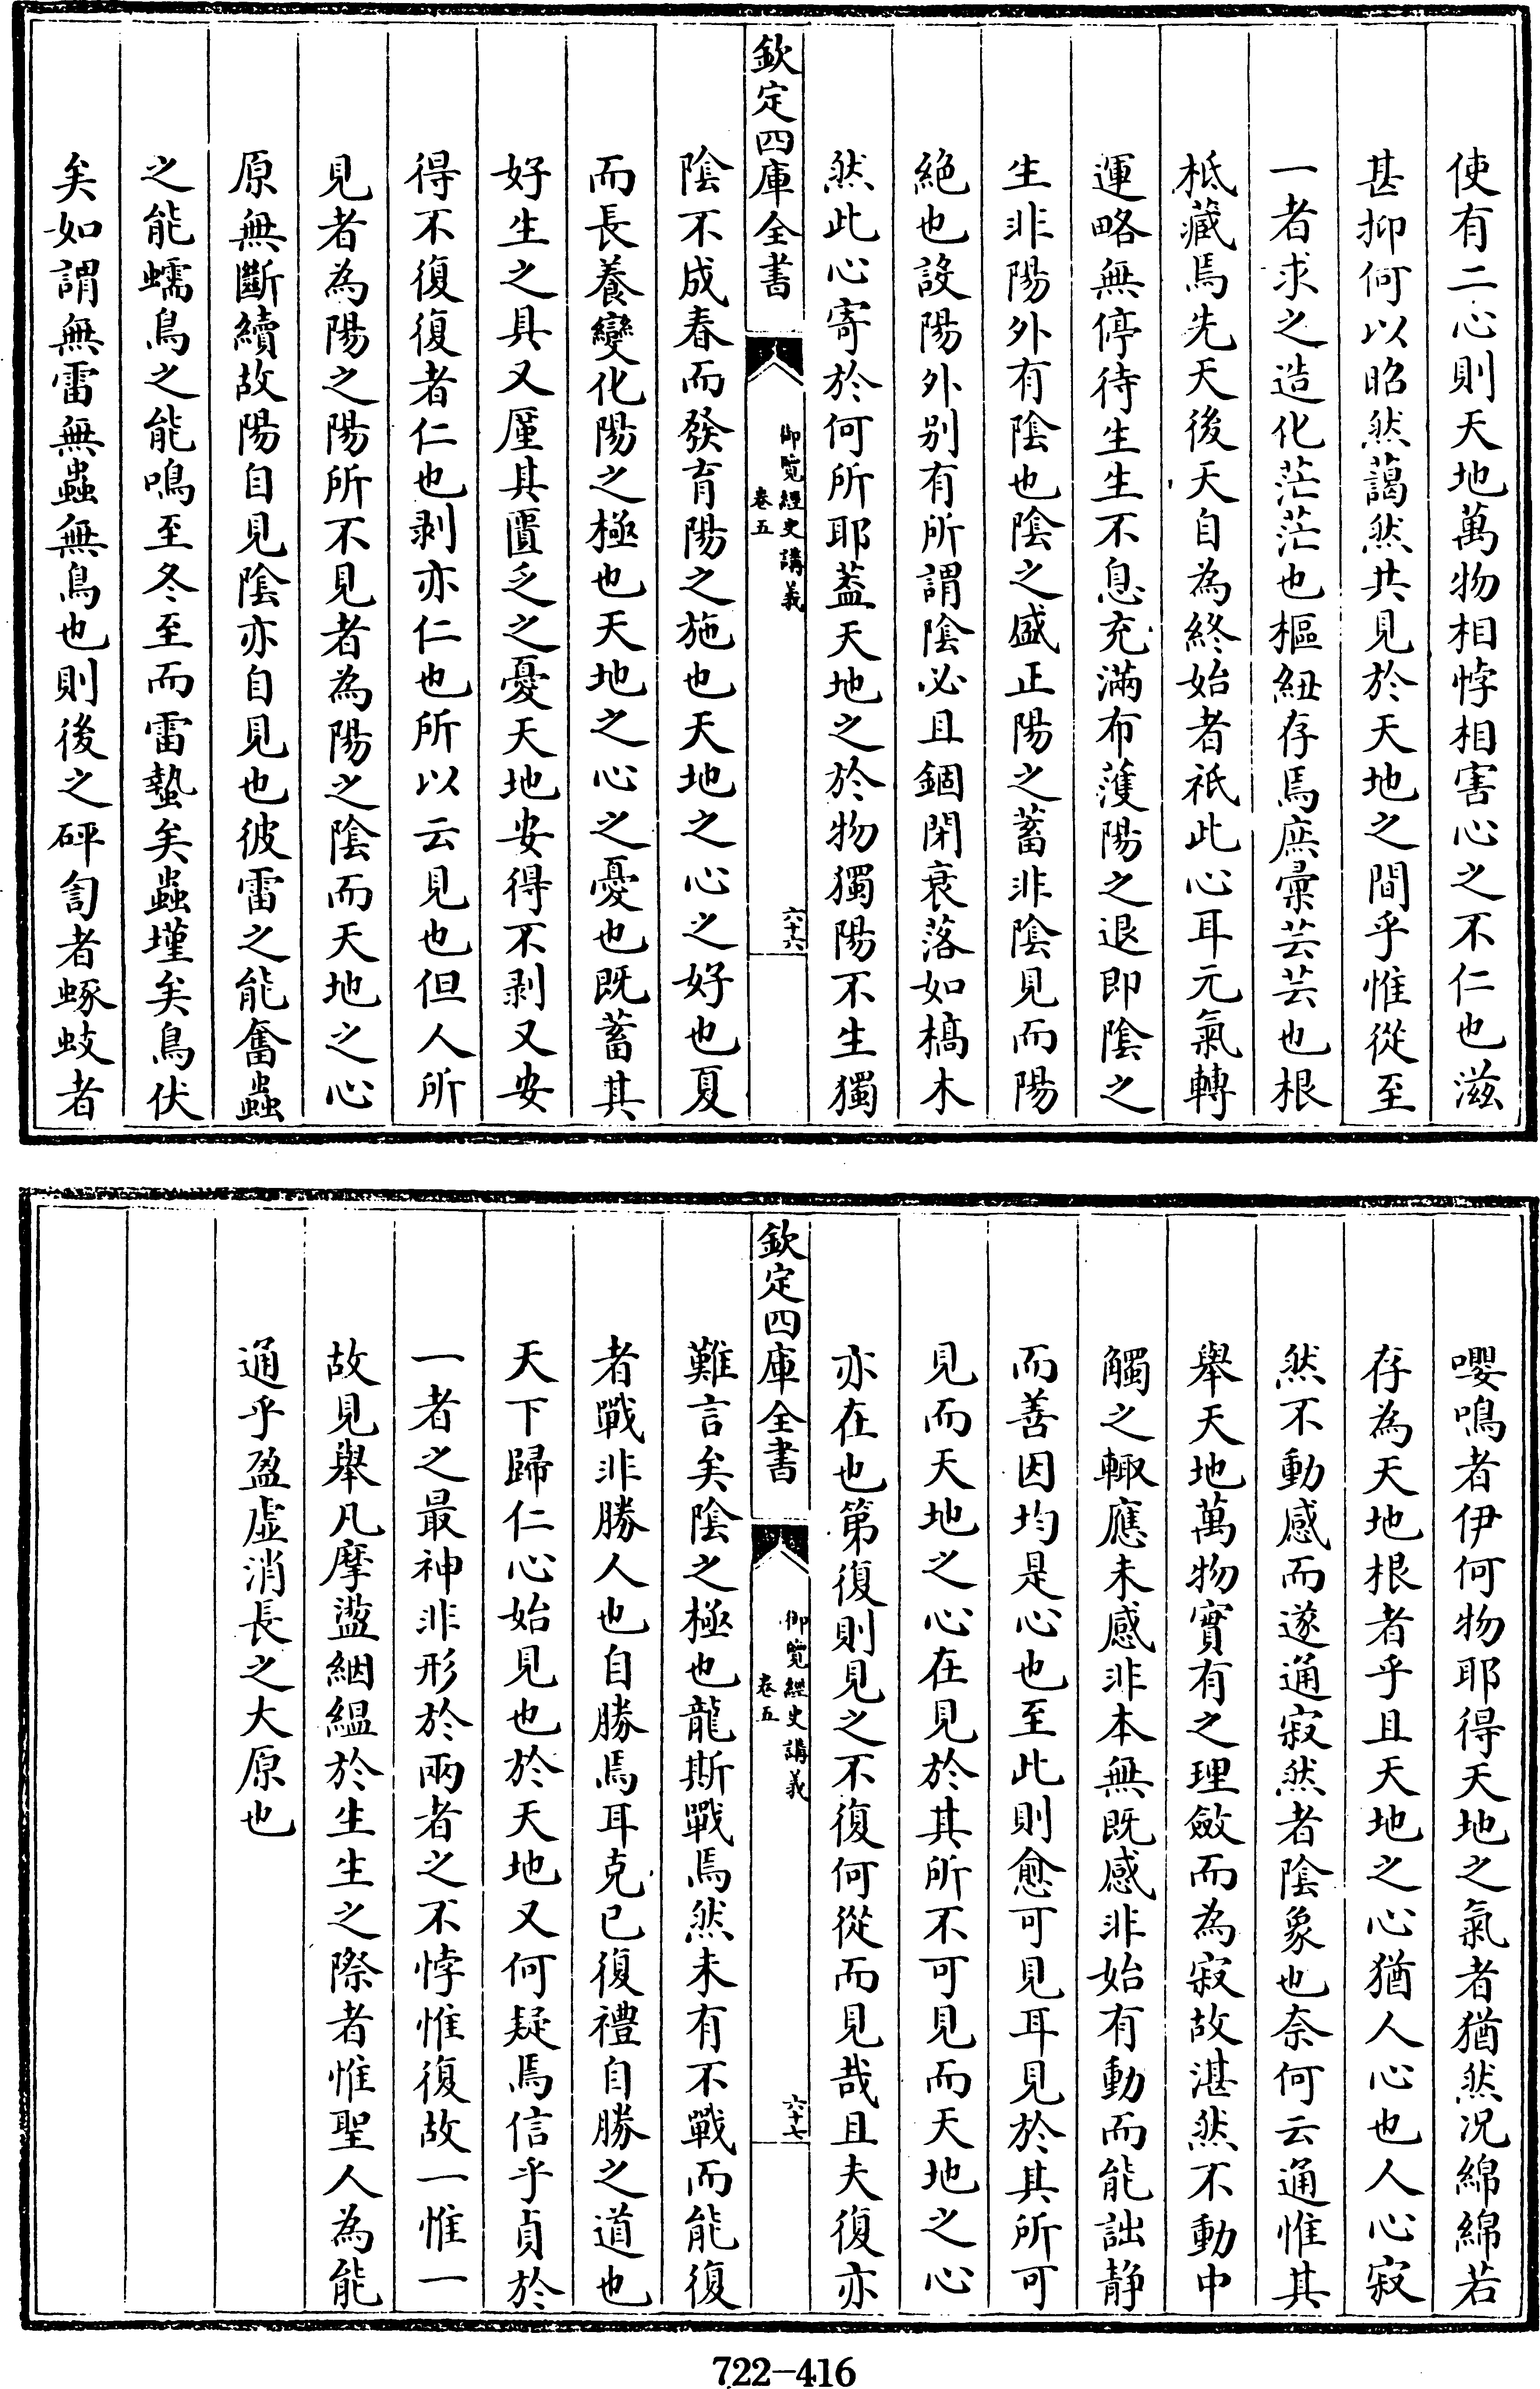 使有二心則天地萬物相悖相害心之不仁也滋
甚抑何以昭然藹然共見於天地之間乎惟從至
一者求之造化茫茫也樞紐存焉庶彚芸芸也根
柢藏焉先天後天自為終始者祇此心耳元氣轉
運略無停待生生不息充滿布濩陽之退即陰之
生非陽外有陰也陰之盛正陽之蓄非陰見而陽
絶也設陽外别有所謂陰必且錮閉衰落如槁木
然此心寄於何所耶葢天地之於物獨陽不生獨
欽定四庫全書
御覽經史講義
卷五
六十六
陰不成春而發育陽之施也天地之心之好也夏
而長養變化陽之極也天地之心之憂也既蓄其
好生之具又厪其匱乏之憂天地安得不剥又安
得不復復者仁也剥亦仁也所以云見也但人所
見者為陽之陽所不見者為陽之陰而天地之心
原無斷續故陽自見陰亦自見也彼雷之能奮蟲
之能蠕鳥之能鳴至冬至而雷蟄矣蟲墐矣鳥伏
矣如謂無雷無蟲無鳥也則後之砰訇者蜍蚑者
嚶鳴者伊何物耶得天地之氣者猶然况綿綿若
存為天地根者乎且天地之心猶人心也人心寂
然不動感而遂通寂然者陰象也奈何云通惟其
舉天地萬物實有之理斂而為寂故湛然不動中
觸之輙應未感非本無既感非始有動而能詘静
而善因均是心也至此則愈可見耳見於其所可
見而天地之心在見於其所不可見而天地之心
亦在也第復則見之不復何從而見哉且夫復亦
欽定四庫全書
御覽經史講義
卷五
六十七
難言矣陰之極也龍斯戰焉然未有不戰而能復
者戰非勝人也自勝焉耳克己復禮自勝之道也
天下歸仁心始見也於天地又何疑焉信乎貞於
一者之最神非形於兩者之不悖惟復故一惟一
故見舉凡摩盪絪縕於生生之際者惟聖人為能
通乎盈虛消長之大原也
722-416